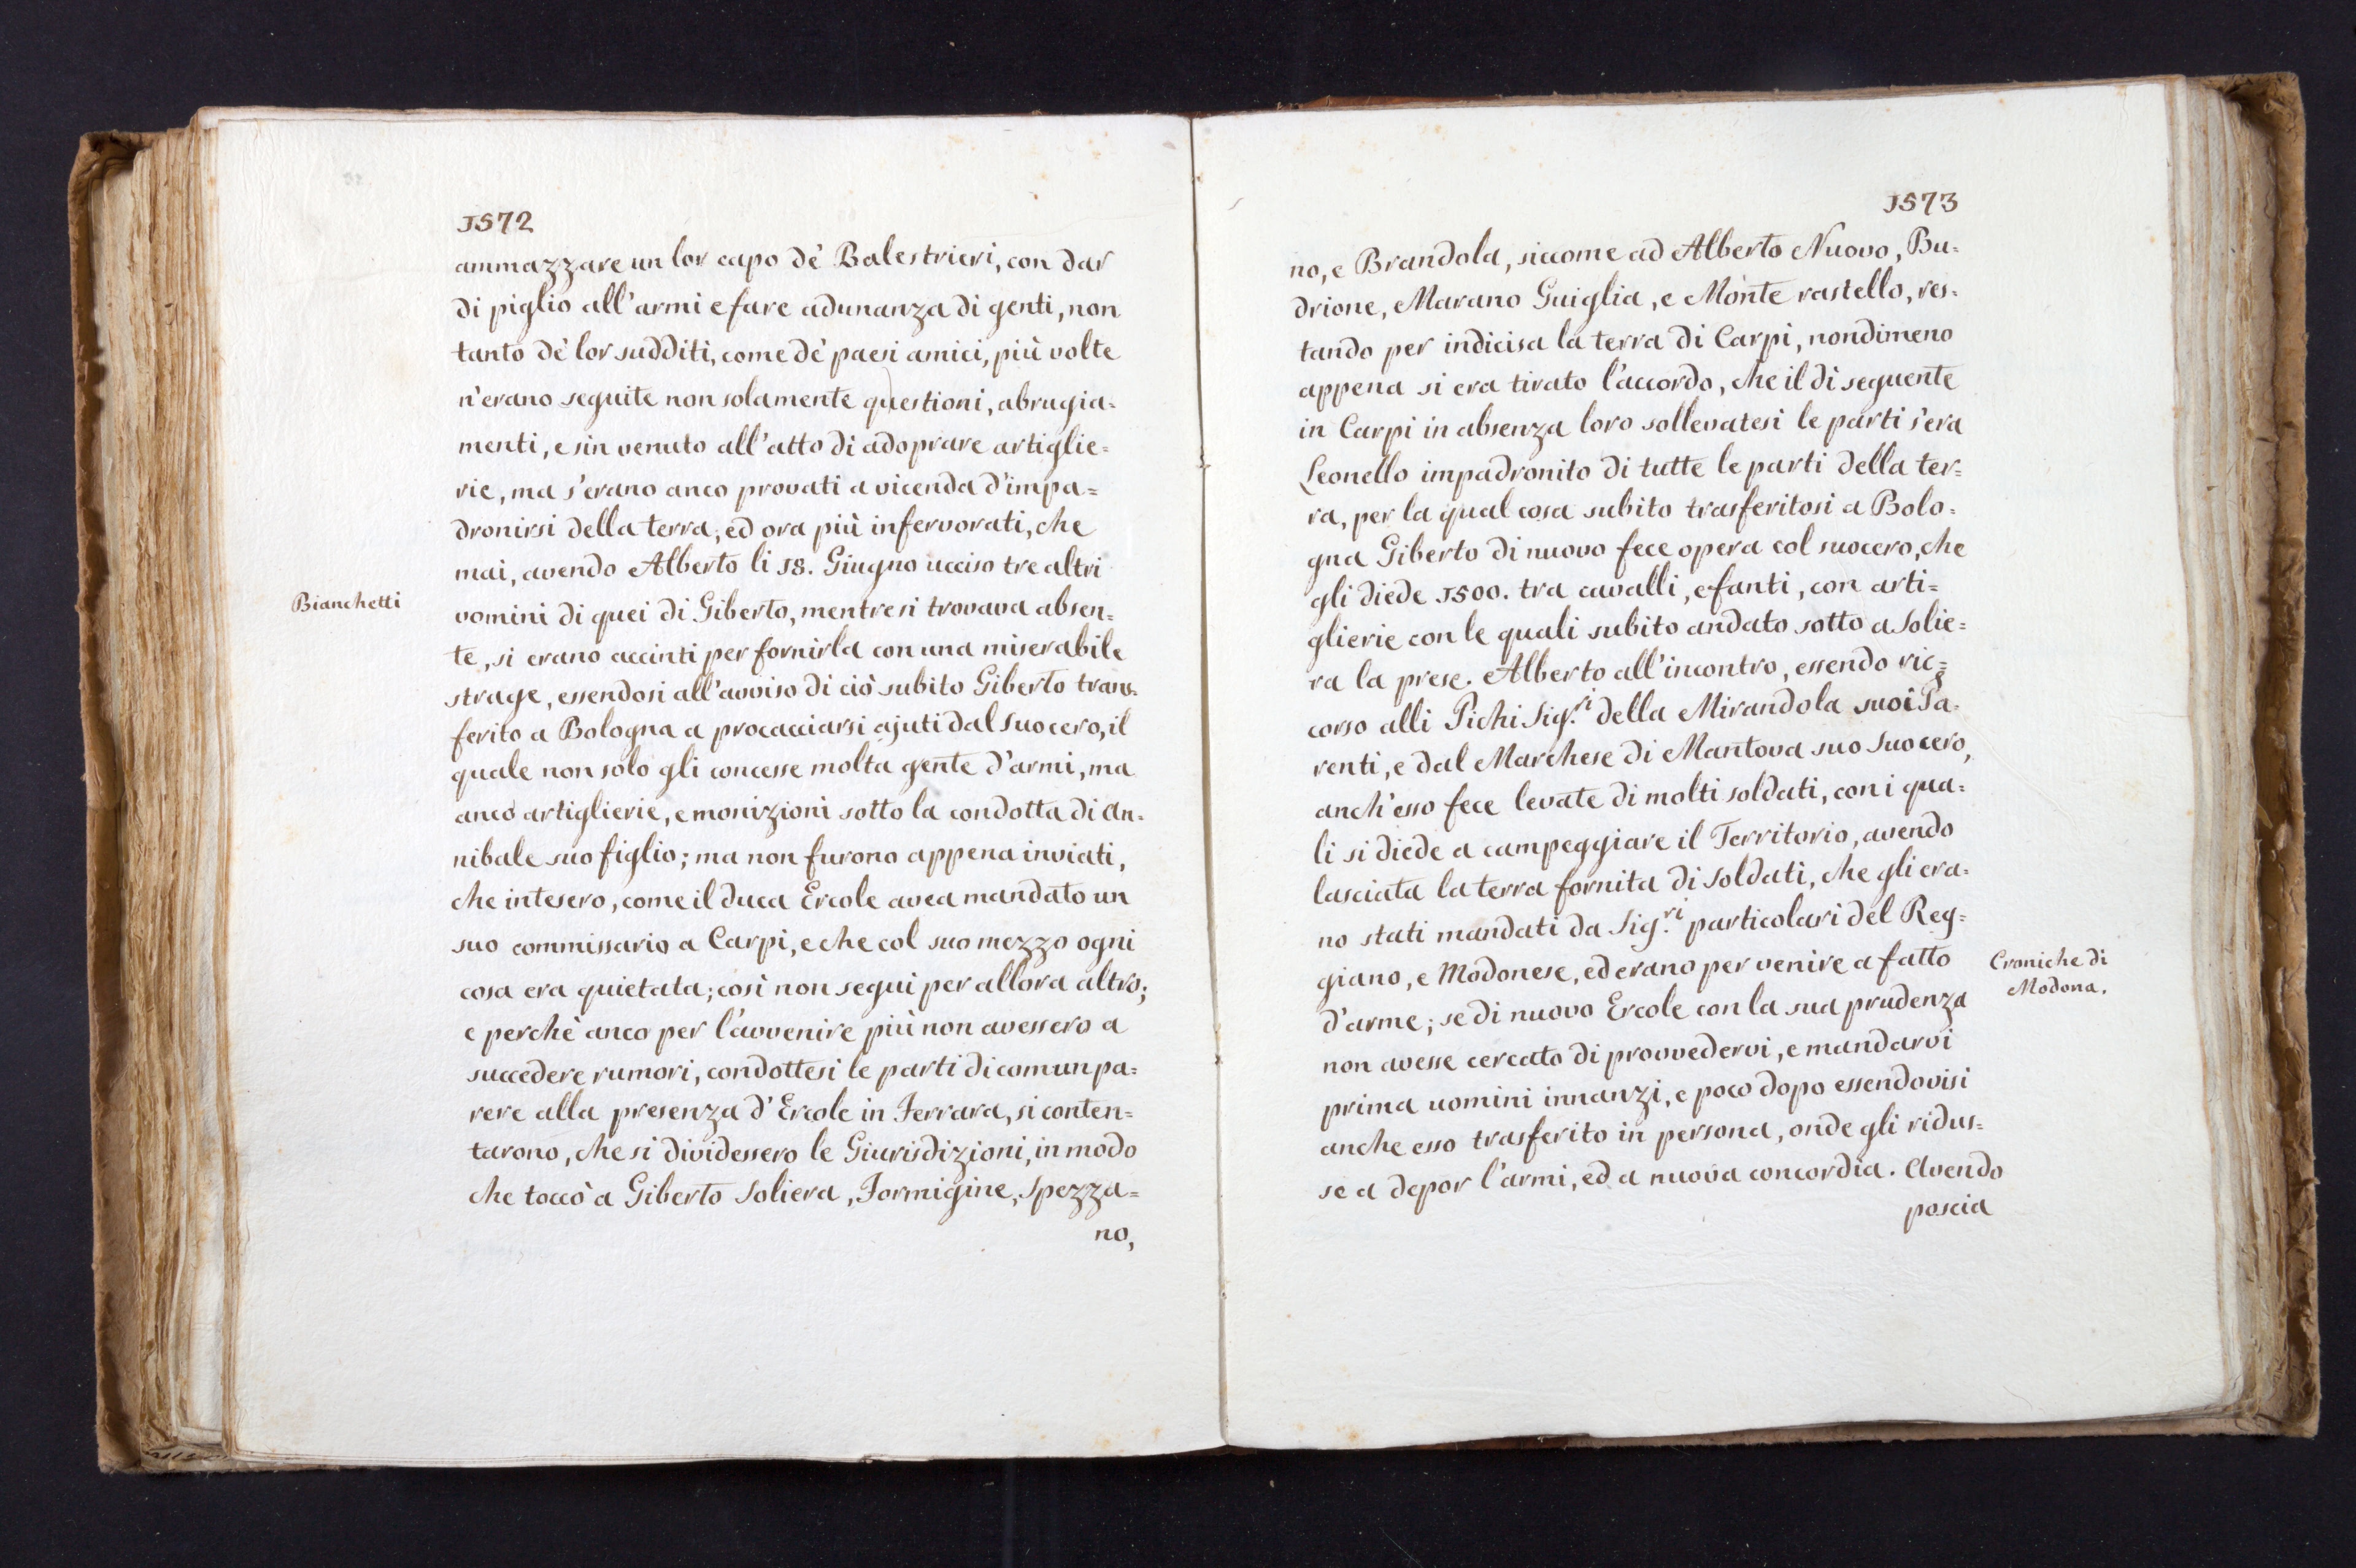 1572
ammazzare un lor capo de' Balestrieri, con dar
di piglio all'armi e fare adunanza di genti, non
tanto de' lor sudditi, come de' paesi amici, più volte
n'erano seguite non solamente questioni, abrugia=
menti, e sin venuto all'atto di adoprare artiglie=
rie, ma s'erano anco provati a vicenda d'impa=
dronirsi della terra; ed ora più infervorati, che
mai, avendo Alberto li 18. Giugno ucciso tre altri
Bianchetti
uomini di quei di Giberto, mentre si trovava absen=
te, si erano accinti per fornirla con una miserabile
strage, essendosi all'avviso di ciò subito Giberto trans=
ferito a Bologna a procacciarsi ajuti dal Suocero, il
quale non solo gli concesse molta gente d'armi, ma
anco artiglierie, e monizioni sotto la condotta di An=
nibale suo figlio; ma non furono appena inviati,
che intesero, come il duca Ercole avea mandato un
suo commissario a Carpi, e che col suo mezzo ogni
cosa era quietata; così non seguì per allora altro;
e perchè anco per l'avvenire più non avessero a
succedere rumori, condottesi le parti di comun pa=
rere alla presenza d'Ercole in Ferrara, si conten=
tarono, che si dividessero le Giurisdizioni, in modo
che toccò a Giberto Soliera, Formigine, Spezza=
no,
1573
no, e Brandola, siccome ad Alberto Nuovo, Bu=
drione, Marano Guiglia, e Monte rastello, res=
tando per indicisa la terra di Carpi, nondimeno
appena si era tirato l'accordo, che il dì seguente
in Carpi in absenza loro sollevatesi le parti s'era
Leonello impadronito di tutte le parti della ter=
ra, per la qual cosa subito trasferitosi a Bolo=
gna Giberto di nuovo fece opera col suocero, che
gli diede 1500. tra cavalli, e fanti, con arti=
glierie con le quali subito andato sotto a Solie=
ra la prese. Alberto all'incontro, essendo ric=
corso alli Pichi Sig.ri della Mirandola suoi Pa=
renti, e dal Marchese di Mantova suo Suocero,
anch'esso fece levate di molti soldati, con i qua=
li si diede a campeggiare il Territorio, avendo
lasciata la terra fornita di Soldati, che gli era=
no stati mandati da Sig.ri particolari del Reg=
giano, e Modonese, ed erano per venire a fatto
Croniche di
Modona.
d'arme; se di nuovo Ercole con la sua prudenza
non avesse cercato di provvedervi, e mandarvi
prima uomini innanzi, e poco dopo essendovisi
anche esso trasferito in persona, onde gli ridus=
se a depor l'armi, ed a nuova concordia. Avendo
poscia